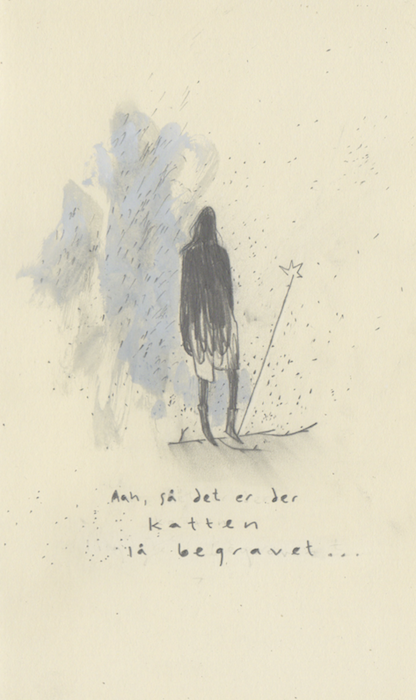 Aah, så det er der
katten
lå begravet...